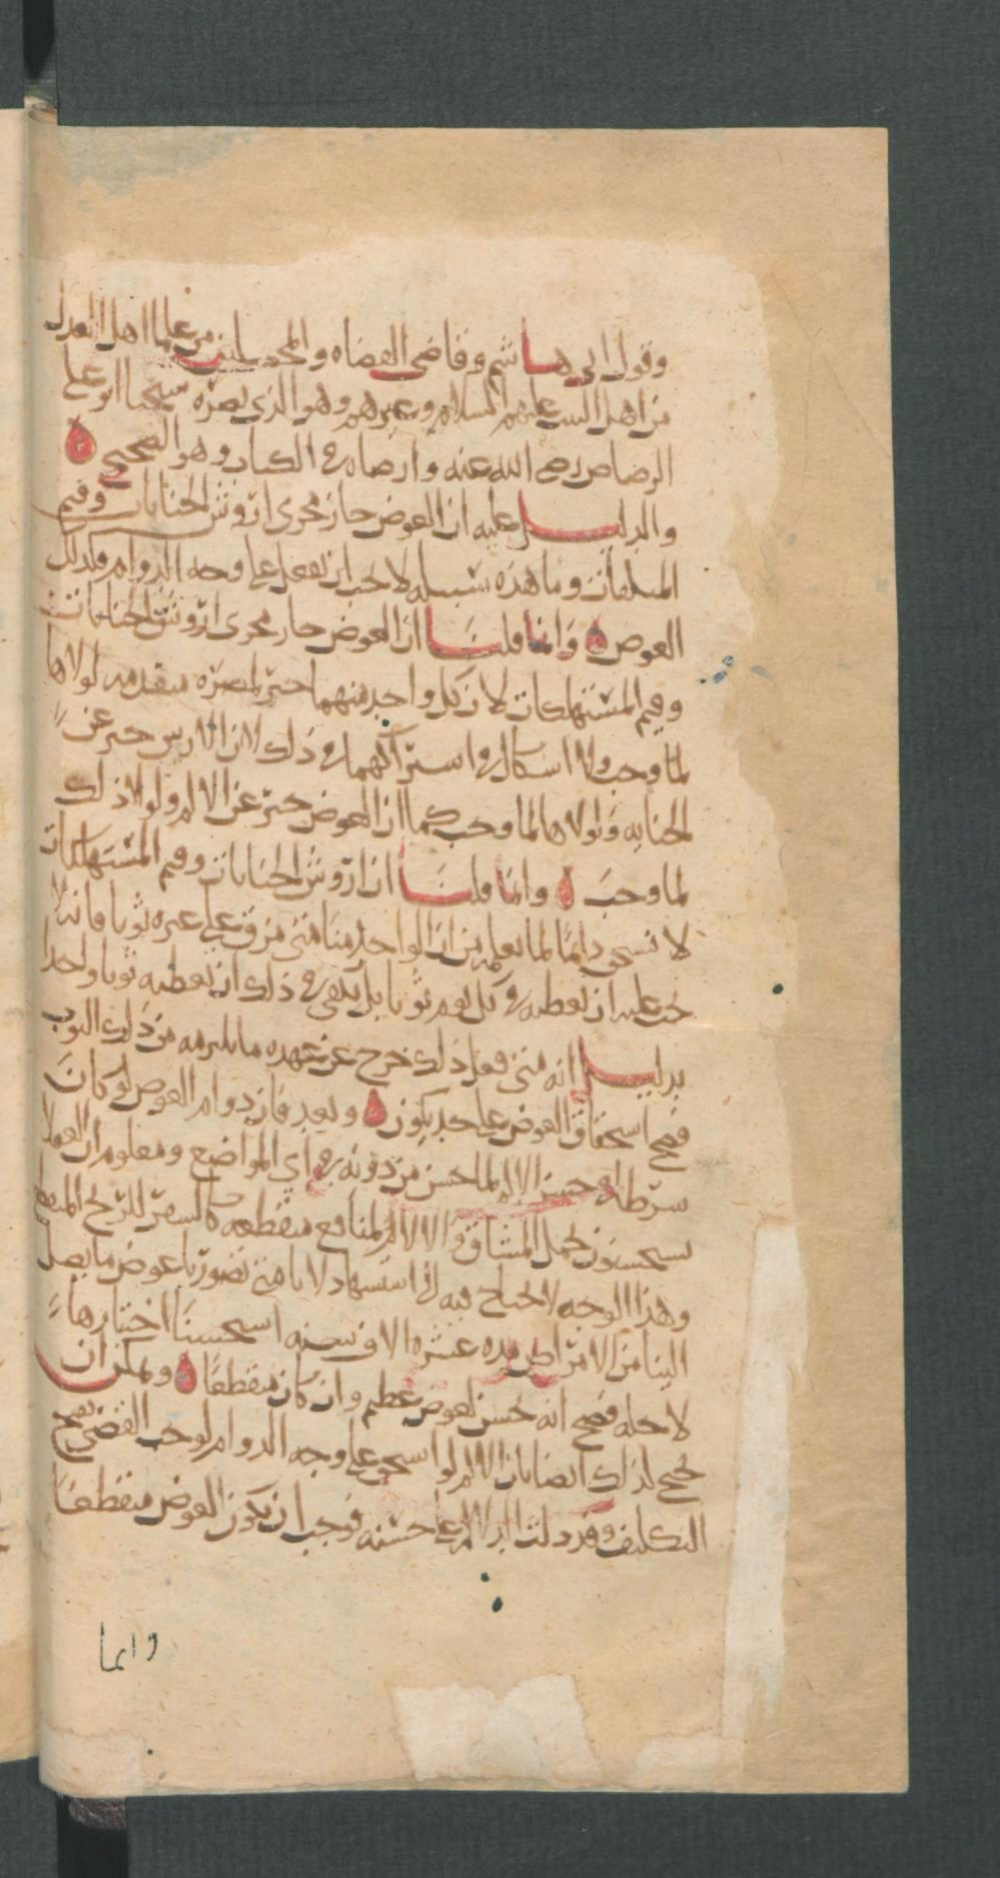 وقول ابي هاشم وقاضي القضاه والمحصلين من علما اهل العدل
من اهل البيت عليهم السلام وغيرهم وهو الذي نصره شيخنا ابو علي
الرصاص رضي الله عنه وارضاه في الكتاب وهو الصحيح ه
والدليل عليه ان العوض جار مجرى اروش الجنايات وقيم
المتلفات وما هذه سبيله لا يجب ان يفعل على وجه الدوام فكذلك
العوض ه وانما قلنا ان العوض جار مجرى اروش الجنايات
وقيم المستهلكات لان كل واحد منهما جبر لمضره متقدمه لولاها
لما وجب ولا اشكال في اشتراكهما في ذلك لان الارش جبر عن
الجنايه ولولاها لما وجب كما ان العوض جبر عن الالم ولولا ذلك
لما وجب ه وانما قلنا ان اروش الجنايات وقيم المستهلكات
لا تستحق دايما لما نعلمه من ان الواحد منا متى مزق على غيره ثوبا فانه لا
يجب عليه ان يعطيه في كل يوم ثوبا بل يكفي في ذلك ان يعطيه ثوبا واحدا
بدليل انه متى فعل ذلك خرج عن عهده ما يلزمه من ذلك الثوب
فصح استحقاق العوض على حد يكون ه وبعد فان دوام العوض لو كان
شرطا في حسن الالم لما حسن من دونه في اي المواضع ومعلوم ان العقلا
يستحسنون تحمل المشاق والالام لمنافع منقطعه كالسفر للربح المنقطع
وهذا الوجه لا يحتاج فيه الى استشهاد لانا متى تصورنا عوض ما يصل
الينا من الامراض مده عشره الاف سنه استحسنا اختيارها
لاجله فصح انه يحسن لعوض عظيم وان كان منقطعا ه ويمكن ان
يحتج لذلك ايضا بان الالم لو استحق على وجه الدوام لوجب القضى بقبح
التكليف وقد دلت الدلاله على حسنه فوجب ان يكون العوض منقطعا
وانما